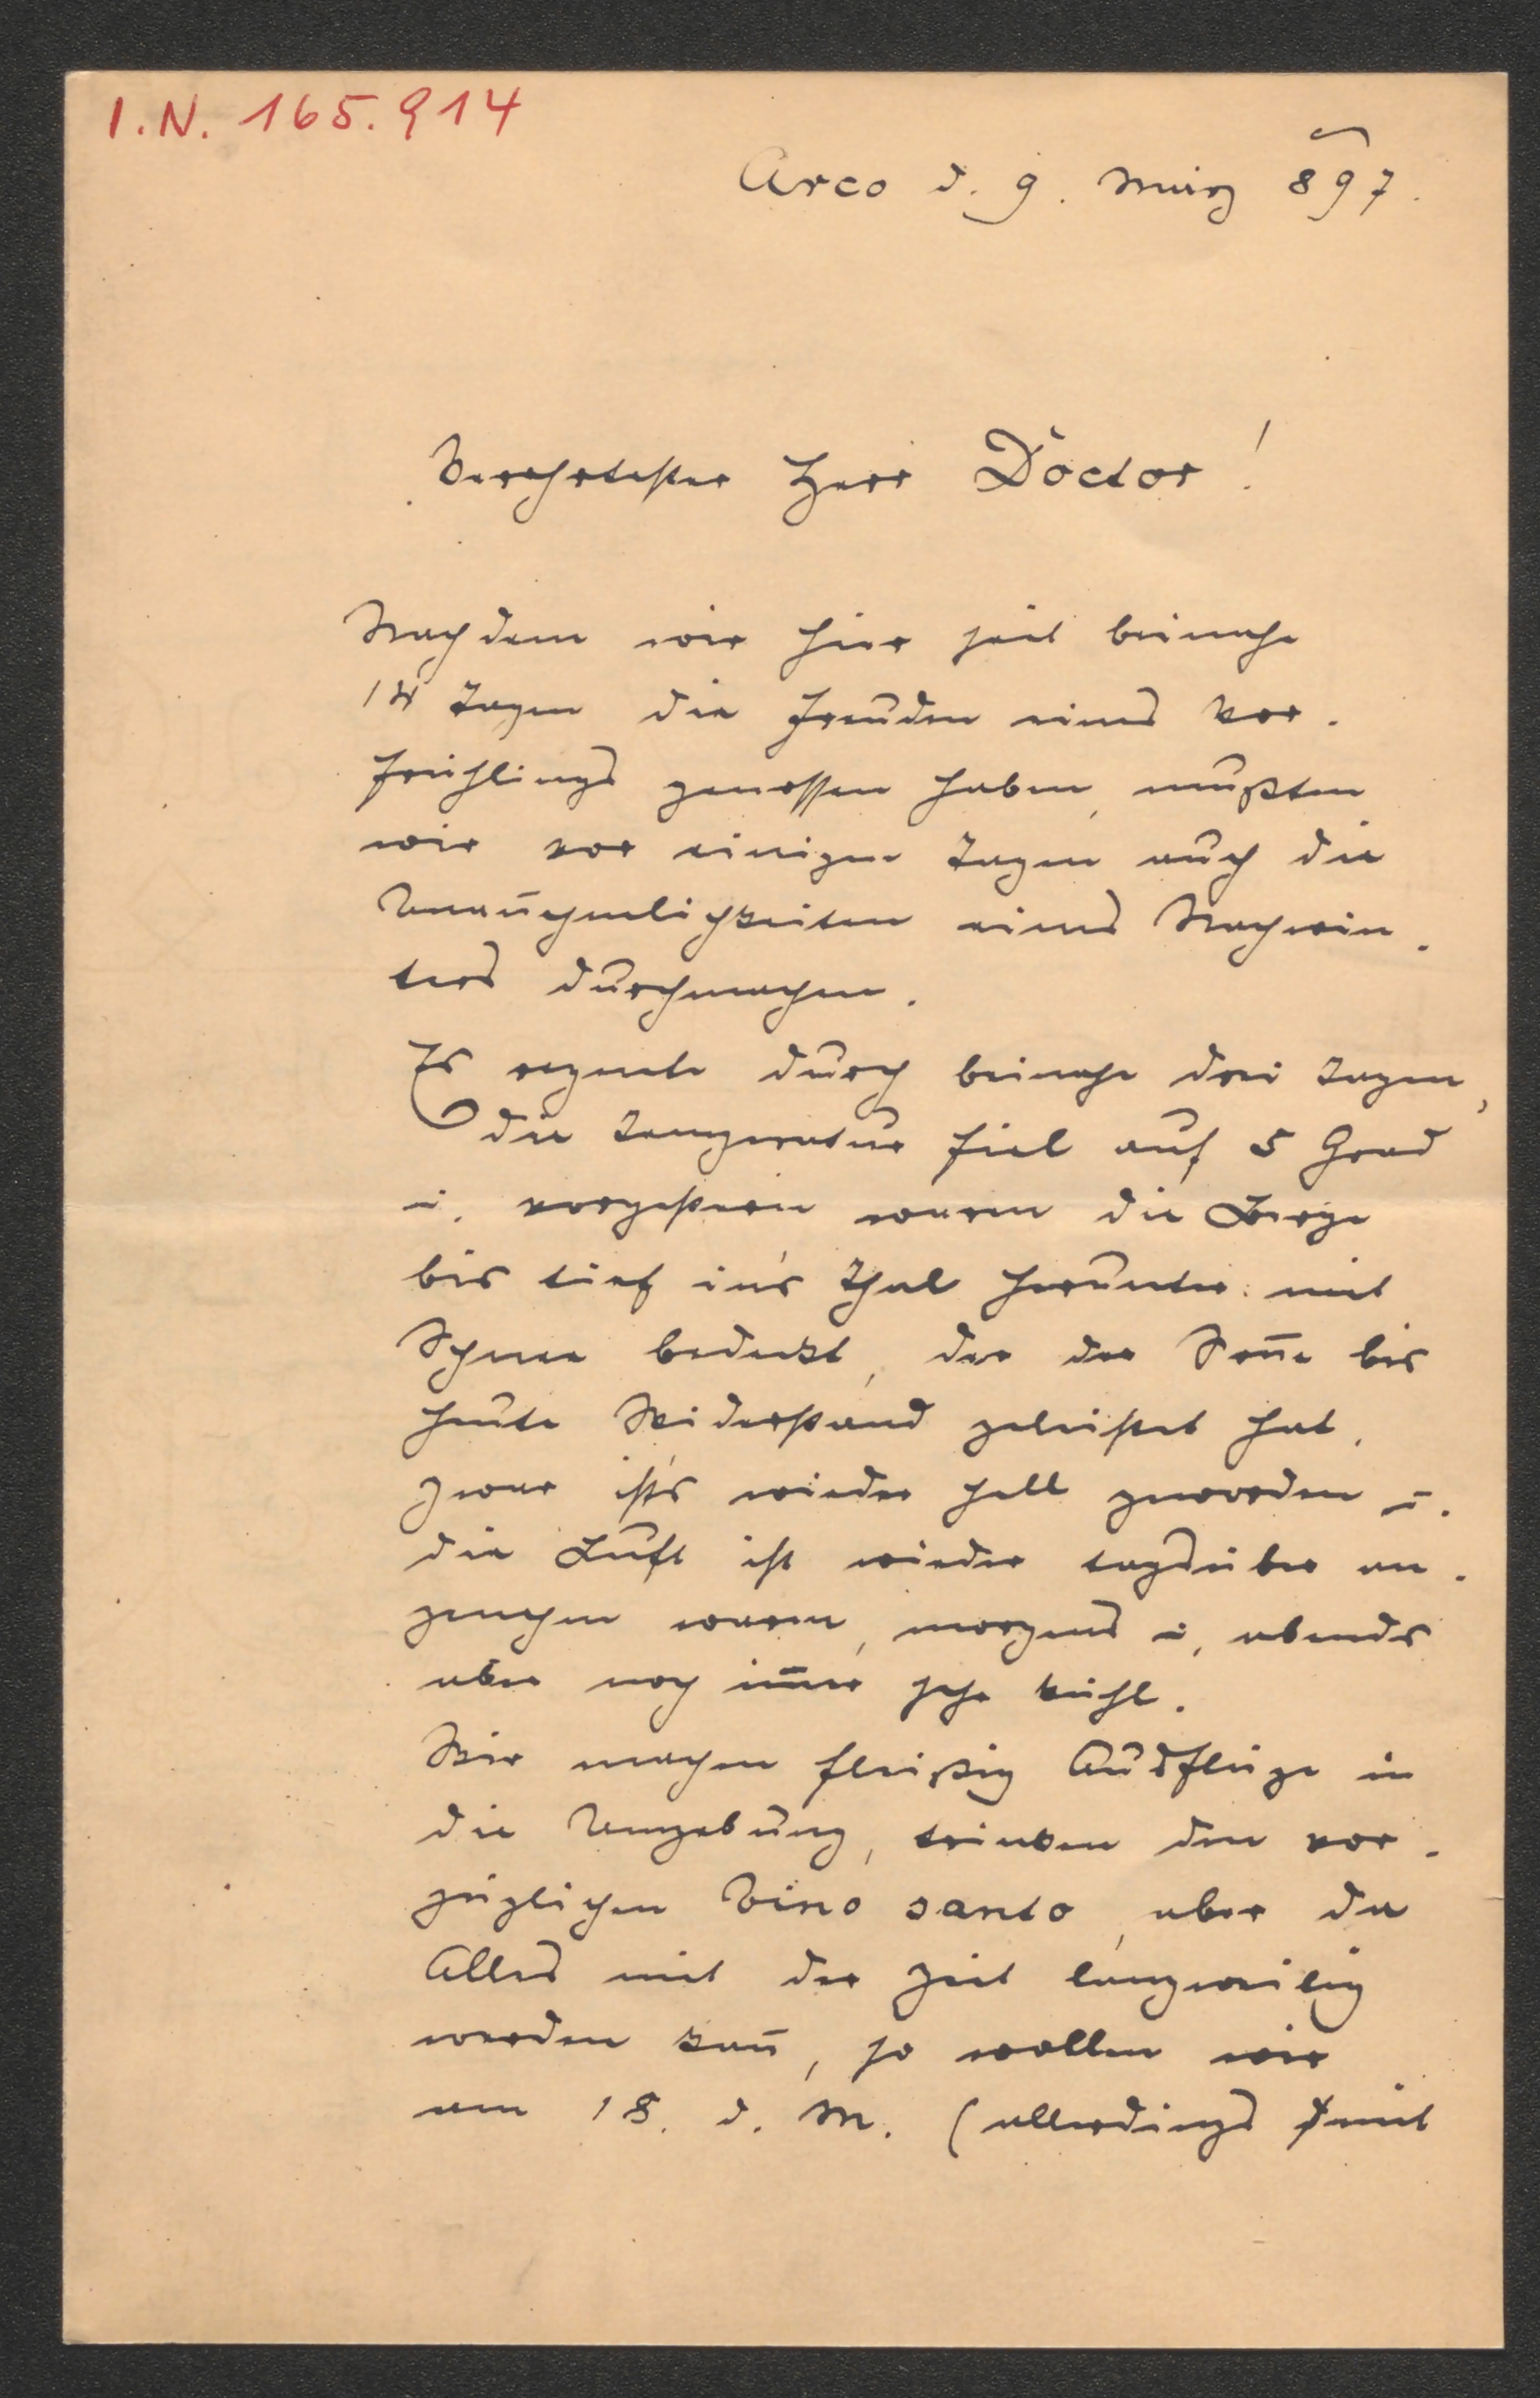 I.N. 165.914
Arco d. 9. März 897.
Verehrtester Herr Doctor!
Nachdem wir hier seit beinahe
14 Tagen die Freuden eines Vor-
frühlings genossen haben, mußten
wir vor einigen Tagen auch die
eines Nachwin-
ters durchmachen.
Es regnete durch beinahe drei Tagen,
die Temperatur fiel auf 5 Grad
u. vorgestern waren die Berge
bis tief in's Thal herunter mit
Schnee bedeckt, der der Soñe bis
heute Widerstand geleistet hat.
Zwar ist's wieder hell geworden u.
die Luft ist wieder tagsüber an-
genehm warm, morgens u. abends
aber noch im̄er sehr kühl.
Wir machen fleißig Ausflüge in
die Umgebung, trinken den vor-
züglichen Vino santo, aber da
Alles mit der Zeit langweilig
werden kañ, so wollen wir
am 18. d. M. (allerdings mit